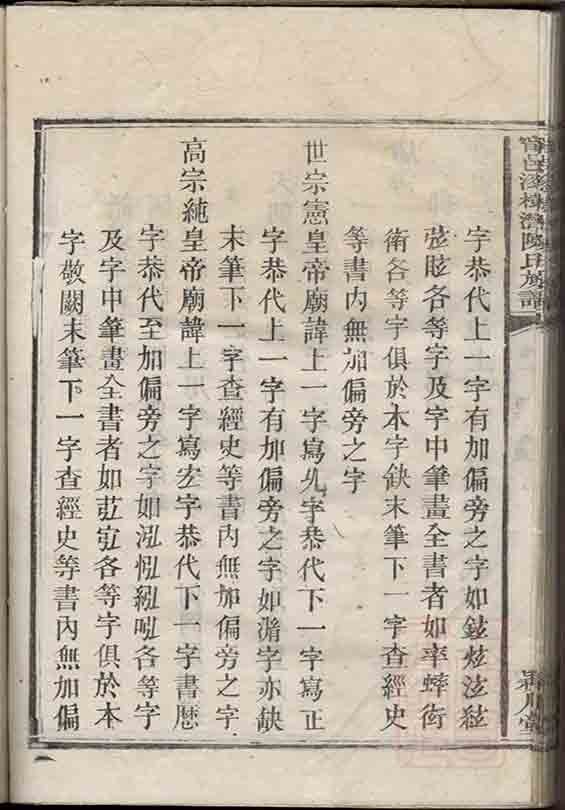 字恭代上一字有加偏旁之字如鉉炫泫絃
弦眩各等字及字中筆畫全書者如率蟀衒
衛各等字俱於本字缺末筆下一字查經史
等書內無加偏旁之字
世宗憲皇帝廟諱上一字寫允字恭代下一字寫正
字恭代上一字有加偏旁之字如湚字亦缺
末筆下一字查經史等書內無加偏旁之字
高宗純皇帝廟諱上一字寫宏字恭代下一字書厯
字恭代至加偏旁之字如泓怋紭吰各等字
及字中筆畫全書者如苰宖各等字俱於本
字敬闕末筆下一字查經史等書內無加偏